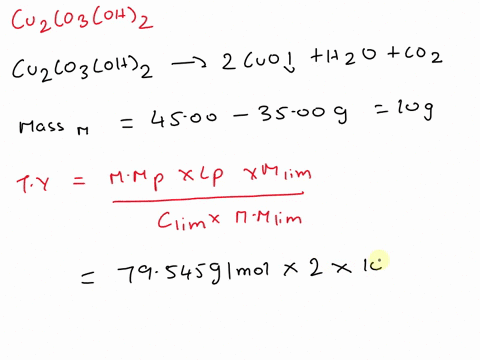 Cu2CO3(OH)2
Cu2CO3(OH)2 → 2 CuO↓ + H2O + CO2
Mass M = 45.00 - 35.00 g = 10g
T.Y = M.Mp × Cp × Mlim
Clim × M.Mlim
= 79.545g/mol × 2 × 10